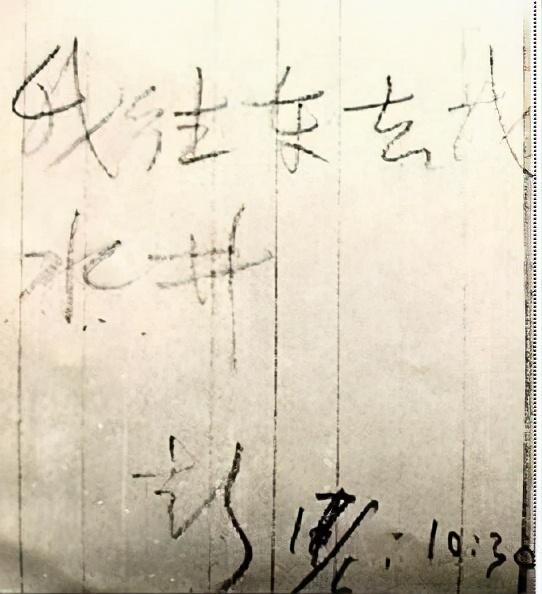 我往东去找
水井
彭 17/6. 10:30